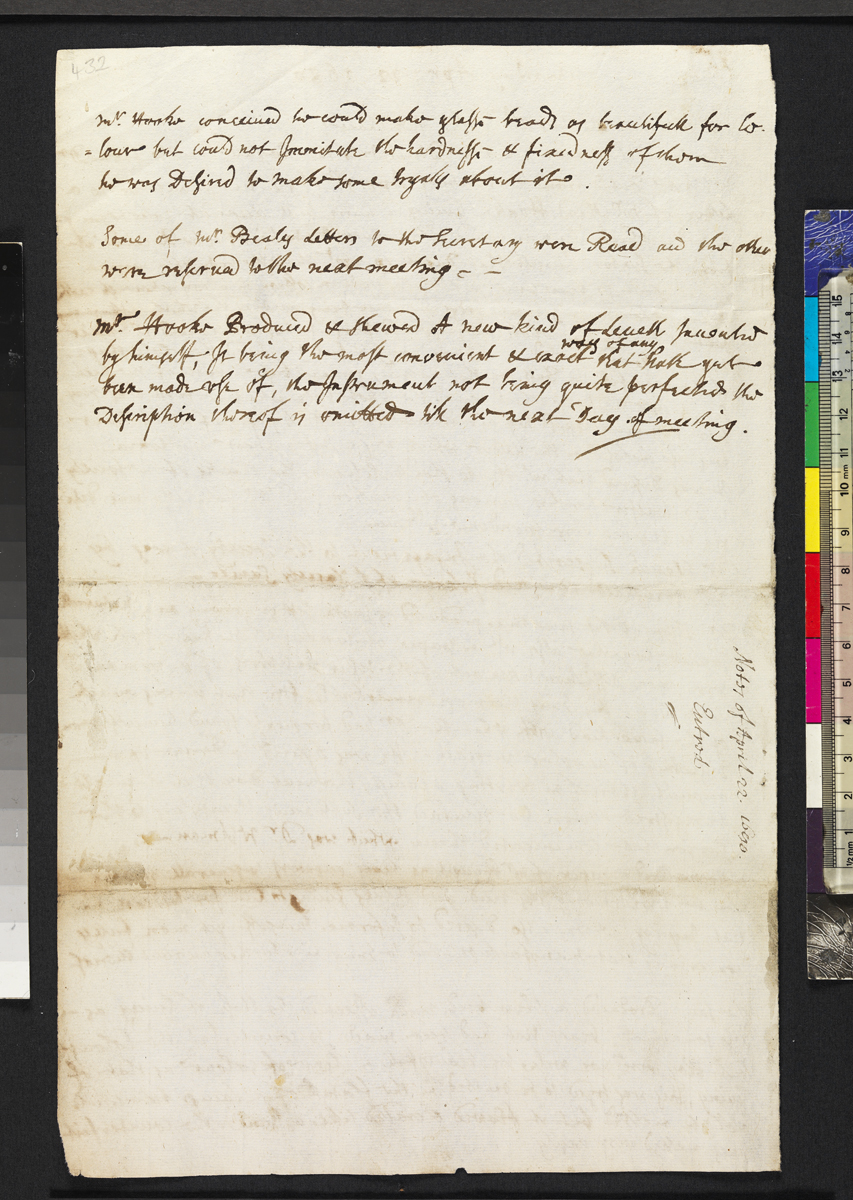 432
Mr. Hooke conceived he could make glasse beads as beautifull for Co-
=lour but could not Immitate the hardnesse & fixedness of them
he was Desired to make some tryals about it.
Some of Mr. Beals Letters to the Secretary were Read and the other
were reserved to the next meeting - -
Mr. Hooke Produced & shewed A new kind of Levell Invented
by himself, It being the most convenient & exact way of any that hath yet
been made use of, the Instrument not being quite perfected the
Description thereof is omitted till the next Day of meeting.
Notes of April 22. 1680.
Entred.